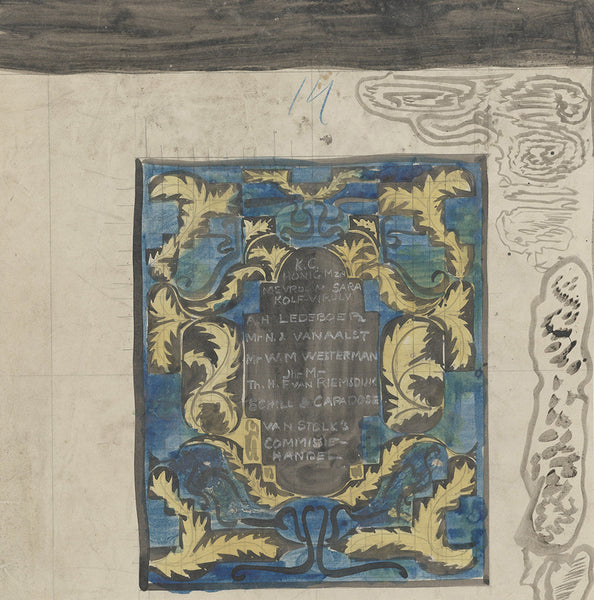 14
K.C.
HONIG MZN
MEVROUW SARA
KOLF-VIRULY
A.H. LEDEBOER
Mr N.J. VAN AALST
Mr W.M. WESTERMAN
Jhr M–
Th. H. F. VAN RIEMSDIJK
SCHILL & CAPADOSE
VAN STOLK'S
COMMISSIE-
HANDEL